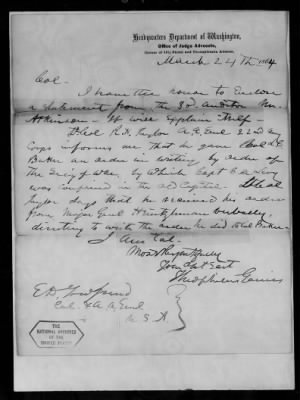 Headquarters Department of Washington,
Office of Judge Advocate,
Corner of 15½ Street and Pennsylvania Avenue,
March 24th 1864
Col.
I have the honor to Enclose
a Statement from the 3d Auditor Mr.
Atkinson. It will Explain itself.
Lt Col R. Taylor A. G. Genl 22nd
Corps informs me that he gave Col L C
Baker an order in writing by order of
the Secy of War, by which Capt
was confined in the Old Capitol. Lt Col
Taylor says that he received his orders
from Major Genl Heintzelman verbally,
directing to write the order he did to Col Baker.
I Am Col.
Most Respectfully
Your Obt Servt
Theophilus Gaines
E D Townsend
Col. & A. A. Genl
U. S. A
THE
NATIONAL ARCHIVES
OF THE
UNITED STATES